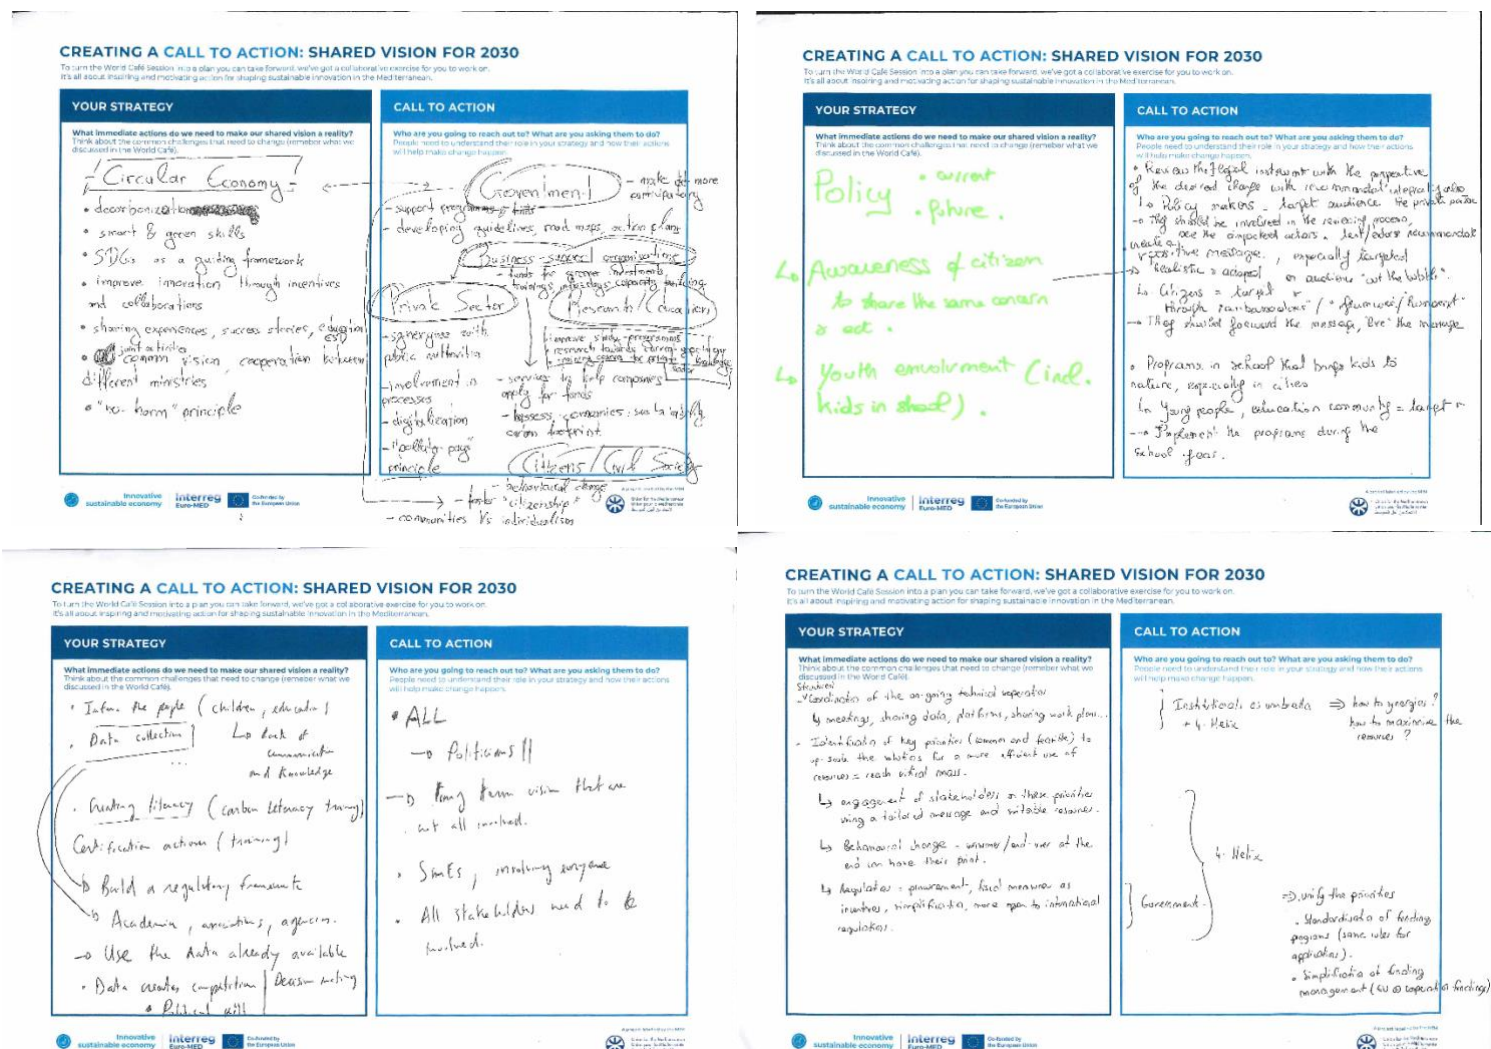 CREATING A CALL TO ACTION: SHARED VISION FOR 2030
To turn the World Café Session into a plan you can take forward, we've got a collaborative exercise for you to work on.
It's all about inspiring and motivating action for shaping sustainable innovation in the Mediterranean.
YOUR STRATEGY
What immediate actions do we need to make our shared vision a reality?
Think about the common challenges that need to change (remeber what we
discussed in the World Café).
Circular Economy
• decarbonization
• smart & green skills
• SDGs as a guiding framework
• improve innovation through incentives
and collaborations
• sharing experiences, success stories, education
ESD
joint activities
common vision, cooperation between
different ministries
• "no-harm" principle
CALL TO ACTION
Who are you going to reach out to? What are you asking them to do?
People need to understand their role in your strategy and how their actions
will help make change happen.
Government
- make it more
participatory
- support programs
- developing guidelines, road maps, action plans
Business-support organisations
- funds for greener investments
trainings, infodays, capacity building
Private Sector
- synergies with
public authorities
- involvement in
processes
- digitalization
- "polluter-pays"
principle
Research/Education
improve study-programms
research towards
- services to help companies
apply for funds
- assess companies' sustainability
carbon footprint
Citizens/Civil Society
- behavioural change
- foster "citizenship"
- communities Vs individualism
Innovative
sustainable economy
Interreg
Euro-MED
Co-funded by
the European Union
CREATING A CALL TO ACTION: SHARED VISION FOR 2030
To turn the World Café Session into a plan you can take forward, we've got a collaborative exercise for you to work on.
It's all about inspiring and motivating action for shaping sustainable innovation in the Mediterranean.
YOUR STRATEGY
What immediate actions do we need to make our shared vision a reality?
Think about the common challenges that need to change (remeber what we
discussed in the World Café).
Policy
• current
• future.
Awareness of citizen
to share the same concern
& act.
Youth envolvment (incl.
kids in school).
CALL TO ACTION
Who are you going to reach out to? What are you asking them to do?
People need to understand their role in your strategy and how their actions
will help make change happen.
• Review the legal instrument with the perspective
of the desired change with
Policy makers - target audience the private sector
→ They should be involved in the reviewing process,
are the impacted actors.
create a
positive message, especially targeted
realistic & adapted audience "out the bubble".
Citizens = target
through "ambassadors"
→ They should forward the message, "live" the message
• Programs in school that brings kids to
nature, especially in cities
Young people, education community = target
→ Implement the programs during the
school year.
Innovative
sustainable economy
Interreg
Euro-MED
Co-funded by
the European Union
CREATING A CALL TO ACTION: SHARED VISION FOR 2030
To turn the World Café Session into a plan you can take forward, we've got a collaborative exercise for you to work on.
It's all about inspiring and motivating action for shaping sustainable innovation in the Mediterranean.
YOUR STRATEGY
What immediate actions do we need to make our shared vision a reality?
Think about the common challenges that need to change (remeber what we
discussed in the World Café).
• Inform the people (children, education)
• Data collection
Lack of
communication
and knowledge
...
• Creating literacy (carbon leteracy training)
Certification actions (training)
Build a regulatory framework
Academia, associations, agencies.
→ Use the data already available
• Data creates competition
Decision making
• Political will
CALL TO ACTION
Who are you going to reach out to? What are you asking them to do?
People need to understand their role in your strategy and how their actions
will help make change happen.
• ALL
→ Politicians !!
→ long term vision that are
not all involved.
• SMEs, involving everyone
• All stakeholders need to be
involved.
Innovative
sustainable economy
Interreg
Euro-MED
Co-funded by
the European Union
CREATING A CALL TO ACTION: SHARED VISION FOR 2030
To turn the World Café Session into a plan you can take forward, we've got a collaborative exercise for you to work on.
It's all about inspiring and motivating action for shaping sustainable innovation in the Mediterranean.
YOUR STRATEGY
What immediate actions do we need to make our shared vision a reality?
Think about the common challenges that need to change (remeber what we
discussed in the World Café).
Structured
- Coordination of the on-going technical cooperation
meetings, sharing data, platforms, sharing work plans...
- Identification of key priorities (common and feasible) to
up-scale the solutions for a more efficient use of
resources = reach critical mass.
engagement of stakeholders on these priorities
using a tailored message and suitable resources.
Behavioural change - consumer/end-user at the
end can have their point.
Regulation = procurement, fiscal measures as
incentives, simplification, more open to international
regulations.
CALL TO ACTION
Who are you going to reach out to? What are you asking them to do?
People need to understand their role in your strategy and how their actions
will help make change happen.
Institutionals as umbrella ⇒ how to synergies?
+ 4-Helix
how to maximise the
resources?
4-Helix
Government.
⇒ unify the priorities
• Standardisation of funding
programs (same rules for
application).
• Simplification of funding
management (EU & cooperation fundings)
Innovative
sustainable economy
Interreg
Euro-MED
Co-funded by
the European Union